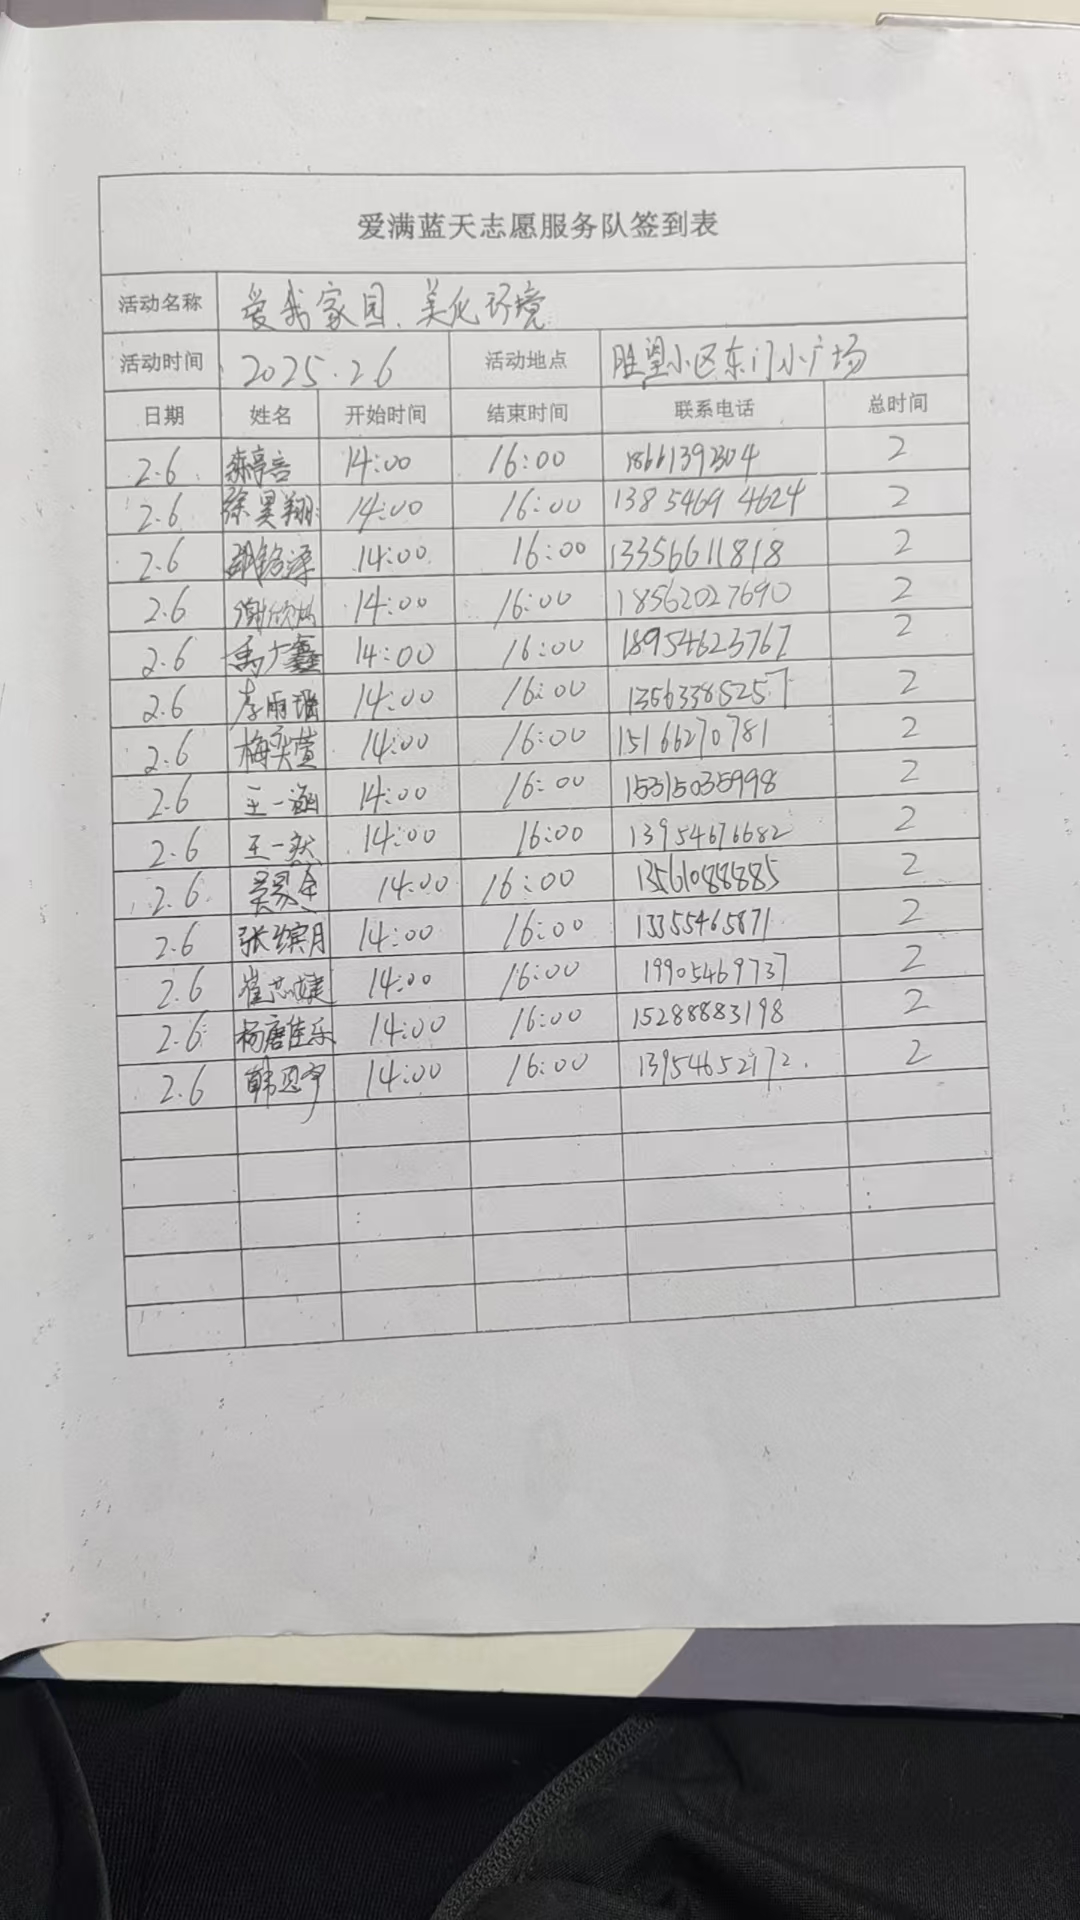 爱满蓝天志愿服务队签到表
活动名称 爱我家园、美化环境
活动时间 2025.2.6 活动地点 胜望小区东门小广场
日期 姓名 开始时间 结束时间 联系电话 总时间
2.6 14:00 16:00 18661392304 2
2.6 徐昊翔 14:00 16:00 13854694624 2
2.6 14:00 16:00 13356611818 2
2.6 14:00 16:00 18562027690 2
2.6 14:00 16:00 18954623767 2
2.6 李雨瑶 14:00 16:00 13563385257 2
2.6 梅奕萱 14:00 16:00 15166270781 2
2.6 王一涵 14:00 16:00 15315035998 2
2.6 王一然 14:00 16:00 13954676682 2
2.6 14:00 16:00 13561088885 2
2.6 张缤月 14:00 16:00 13355465871 2
2.6 崔芯婕 14:00 16:00 19905469737 2
2.6 杨唐佳乐 14:00 16:00 15288883198 2
2.6 韩思宇 14:00 16:00 13954652172 2